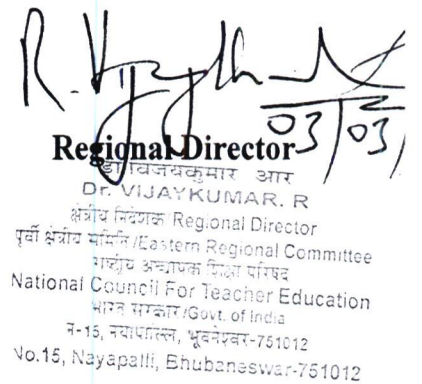 R. Vijaykumar
03/03/
Regional Director
डा विजयकुमार आर
Dr. VIJAYKUMAR. R
क्षेत्रीय निदेशक/Regional Director
पूर्वी क्षेत्रीय समिति/Eastern Regional Committee
राष्ट्रीय अध्यापक शिक्षा परिषद
National Council For Teacher Education
भारत सरकार/Govt. of India
न-15, नयापल्लि, भूवनेश्वर-751012
No.15, Nayapalli, Bhubaneswar-751012